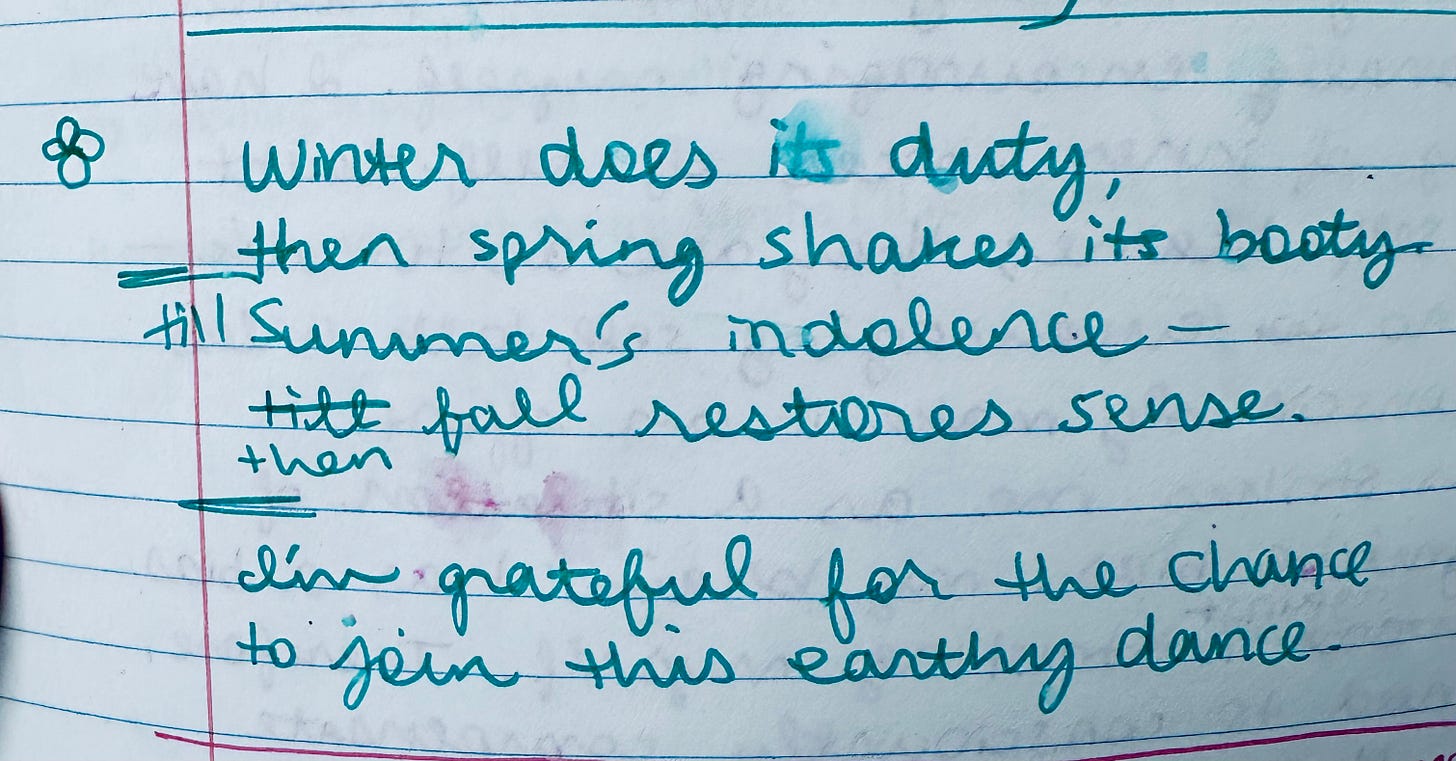 Winter does its duty,
then spring shakes its booty
till Summer's indolence –
till fall restores sense.
then
I'm grateful for the chance
to join this earthy dance.